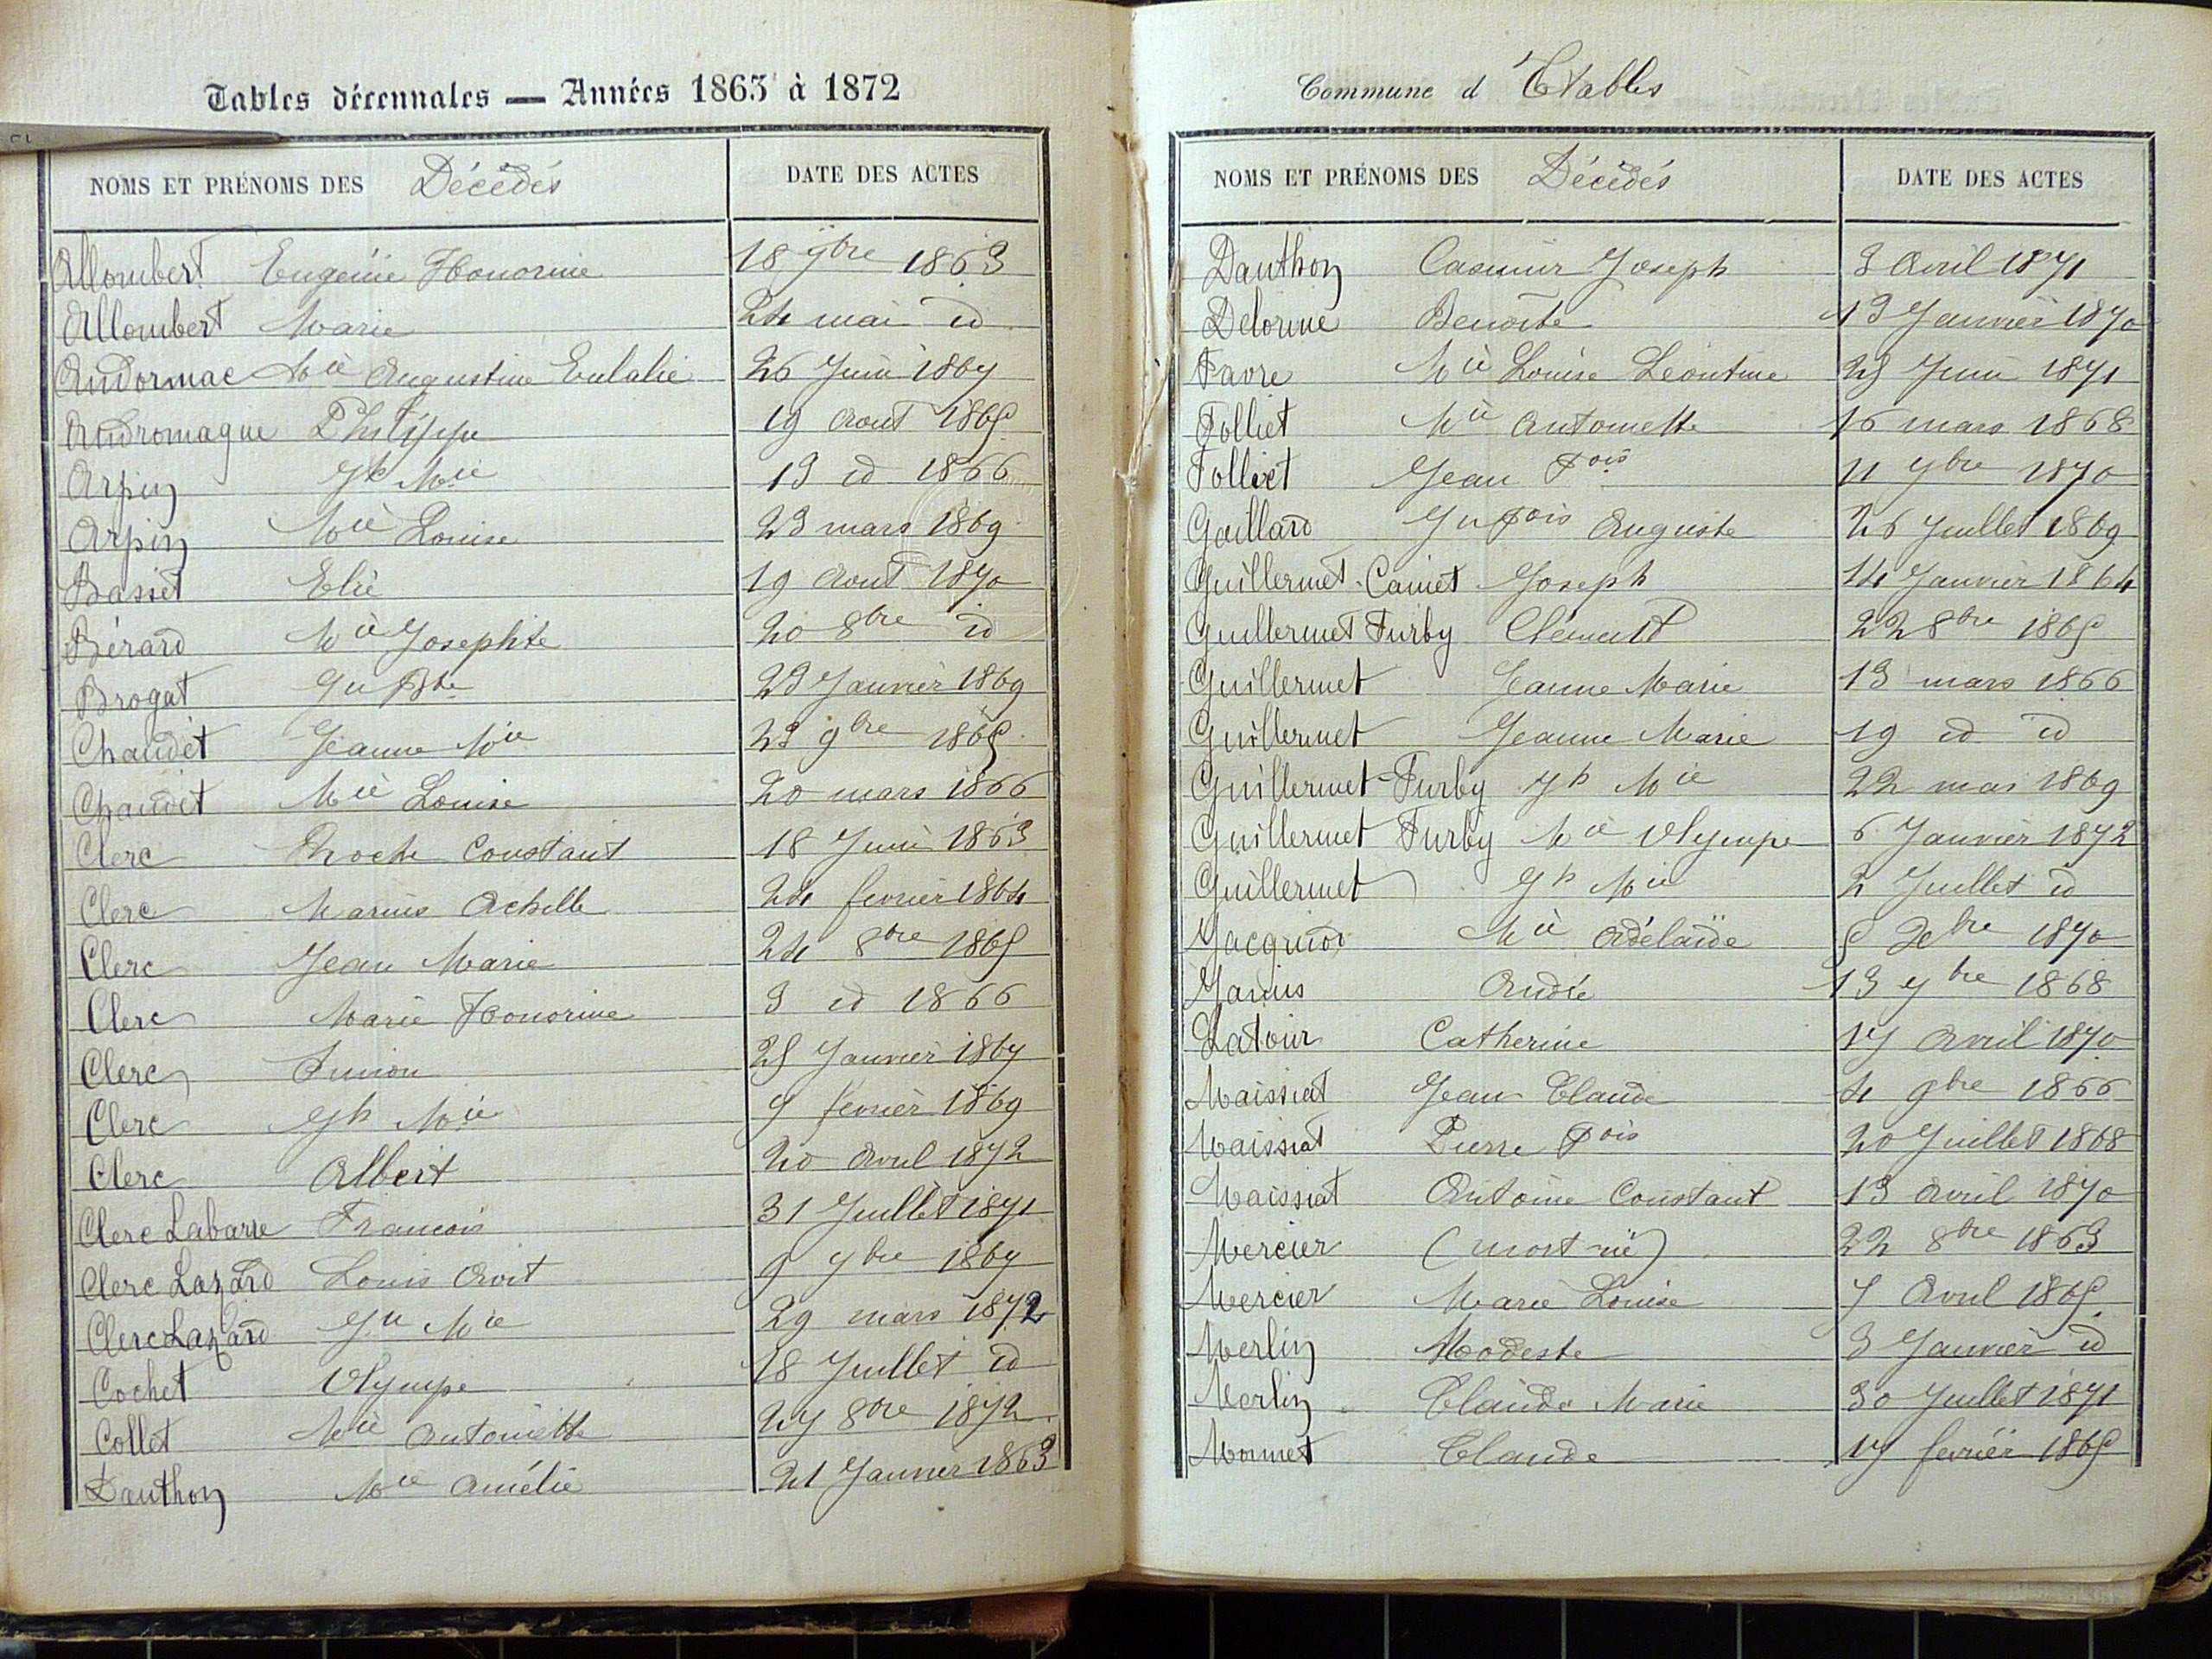 Tables décennales — Années 1863 à 1872
NOMS ET PRÉNOMS DES Décédés DATE DES ACTES
Allombert Eugénie Honorine 18 7bre 1863
Allombert Marie 24 mai id
Andormac Mie Augustine Eulalie 26 Juin 1867
Andromaque Philippe 19 Aout 1865
Arpin Jh Mie 13 id 1866
Arpin Mie Louise 23 mars 1869
Basset Elie 19 Aout 1870
Bérard Mie Josephte 20 8bre id
Brogat Jn Bte 23 Janvier 1869
Chaudet Jeanne Mie 23 9bre 1865
Chaudet Mie Louise 20 mars 1866
Clerc Roche Constant 18 Juin 1863
Clerc Marius Achille 24 fevrier 1864
Clerc Jean Marie 24 8bre 1865
Clerc Marie Honorine 3 id 1866
Clerc 25 Janvier 1867
Clerc Jh Mie 7 fevrier 1869
Clerc Albert 20 Avril 1872
Clerc Labarre Francois 31 Juillet 1871
Clerc Lazard Louis 5 7bre 1867
Clerc Lazard Jn Mie 29 mars 1872
Cochet Olympe 18 Juillet id
Collet Mie Antoinette 27 8bre 1872
Dauthon Mie Amélie 21 Janvier 1863
Commune d'Etables
NOMS ET PRÉNOMS DES Décédés DATE DES ACTES
Dauthon Casimir Joseph 3 Avril 1871
Delorme Benoite 13 Janvier 1870
Favre Mie Louise Léontine 25 Juin 1871
Folliet Mie Antoinette 16 mars 1868
Folliet Jean Fois 11 7bre 1870
Gaillard Jn Fois Auguste 26 Juillet 1869
Guillermet-Cainet Joseph 14 Janvier 1864
Guillermet Furby Clément 22 8bre 1865
Guillermet Jeanne Marie 13 mars 1866
Guillermet Jeanne Marie 19 id id
Guillermet-Furby Jh Mie 22 mai 1869
Guillermet Furby Mie Olympe 6 Janvier 1872
Guillermet Jh Mie 2 Juillet id
Jacquiod Mie Adélaïde 5 Xbre 1870
Janus André 13 7bre 1868
Latour Catherine 17 Avril 1870
Maissiat Jean Claude 4 9bre 1866
Maissiat Pierre Fois 20 Juillet 1868
Maissiat Antoine Constant 13 Avril 1870
Mercier (mort-né) 22 8bre 1863
Mercier Marie Louise 7 Avril 1865
Merlin Modeste 3 Janvier id
Merlin Claude Marie 30 Juillet 1871
Monnet Claude 17 fevrier 1865